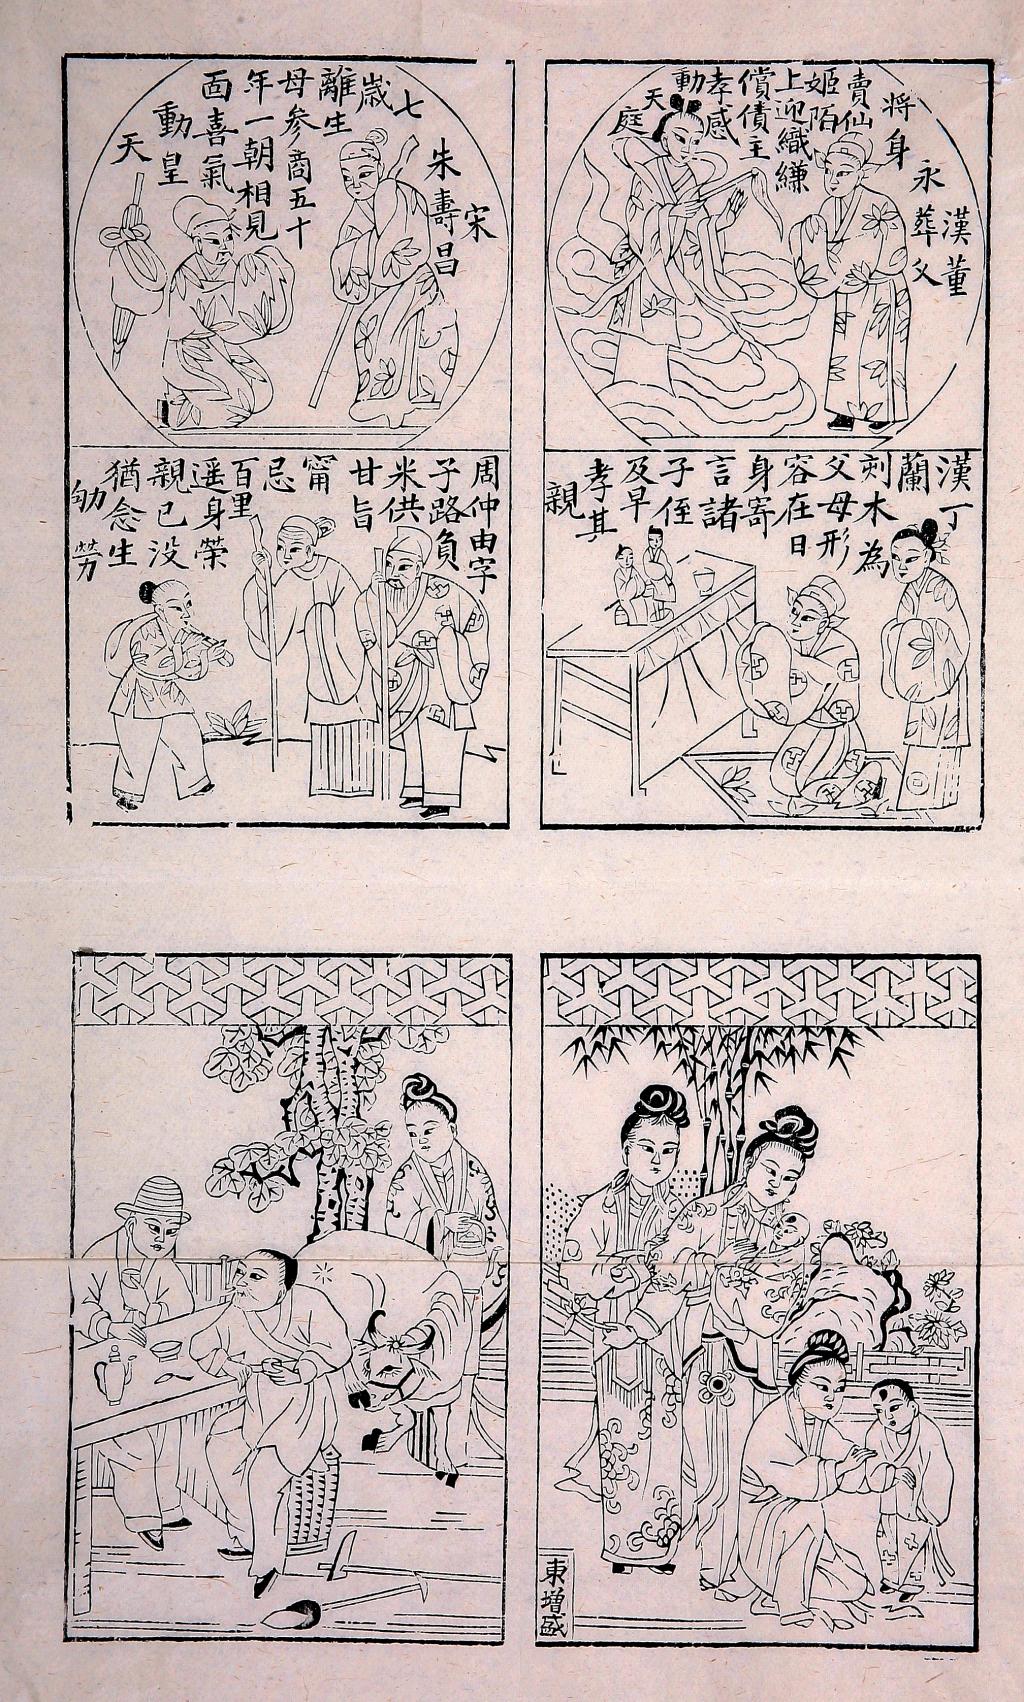 漢董
永葬父
将身
賣仙
姬陌
上迎織縑
償債主
孝感
動
天
庭
宋
朱壽昌
七
歳
離生
母参商五十
年一朝相見
面喜氣
動皇
天
漢丁
蘭
刻木為
父母形
容在日
身寄
言諸
子侄
及早
孝其
親
周仲由字
子路負
米供
甘旨
甯
忌
百里
遥身榮
親已没
猶念生
劬勞
東增盛